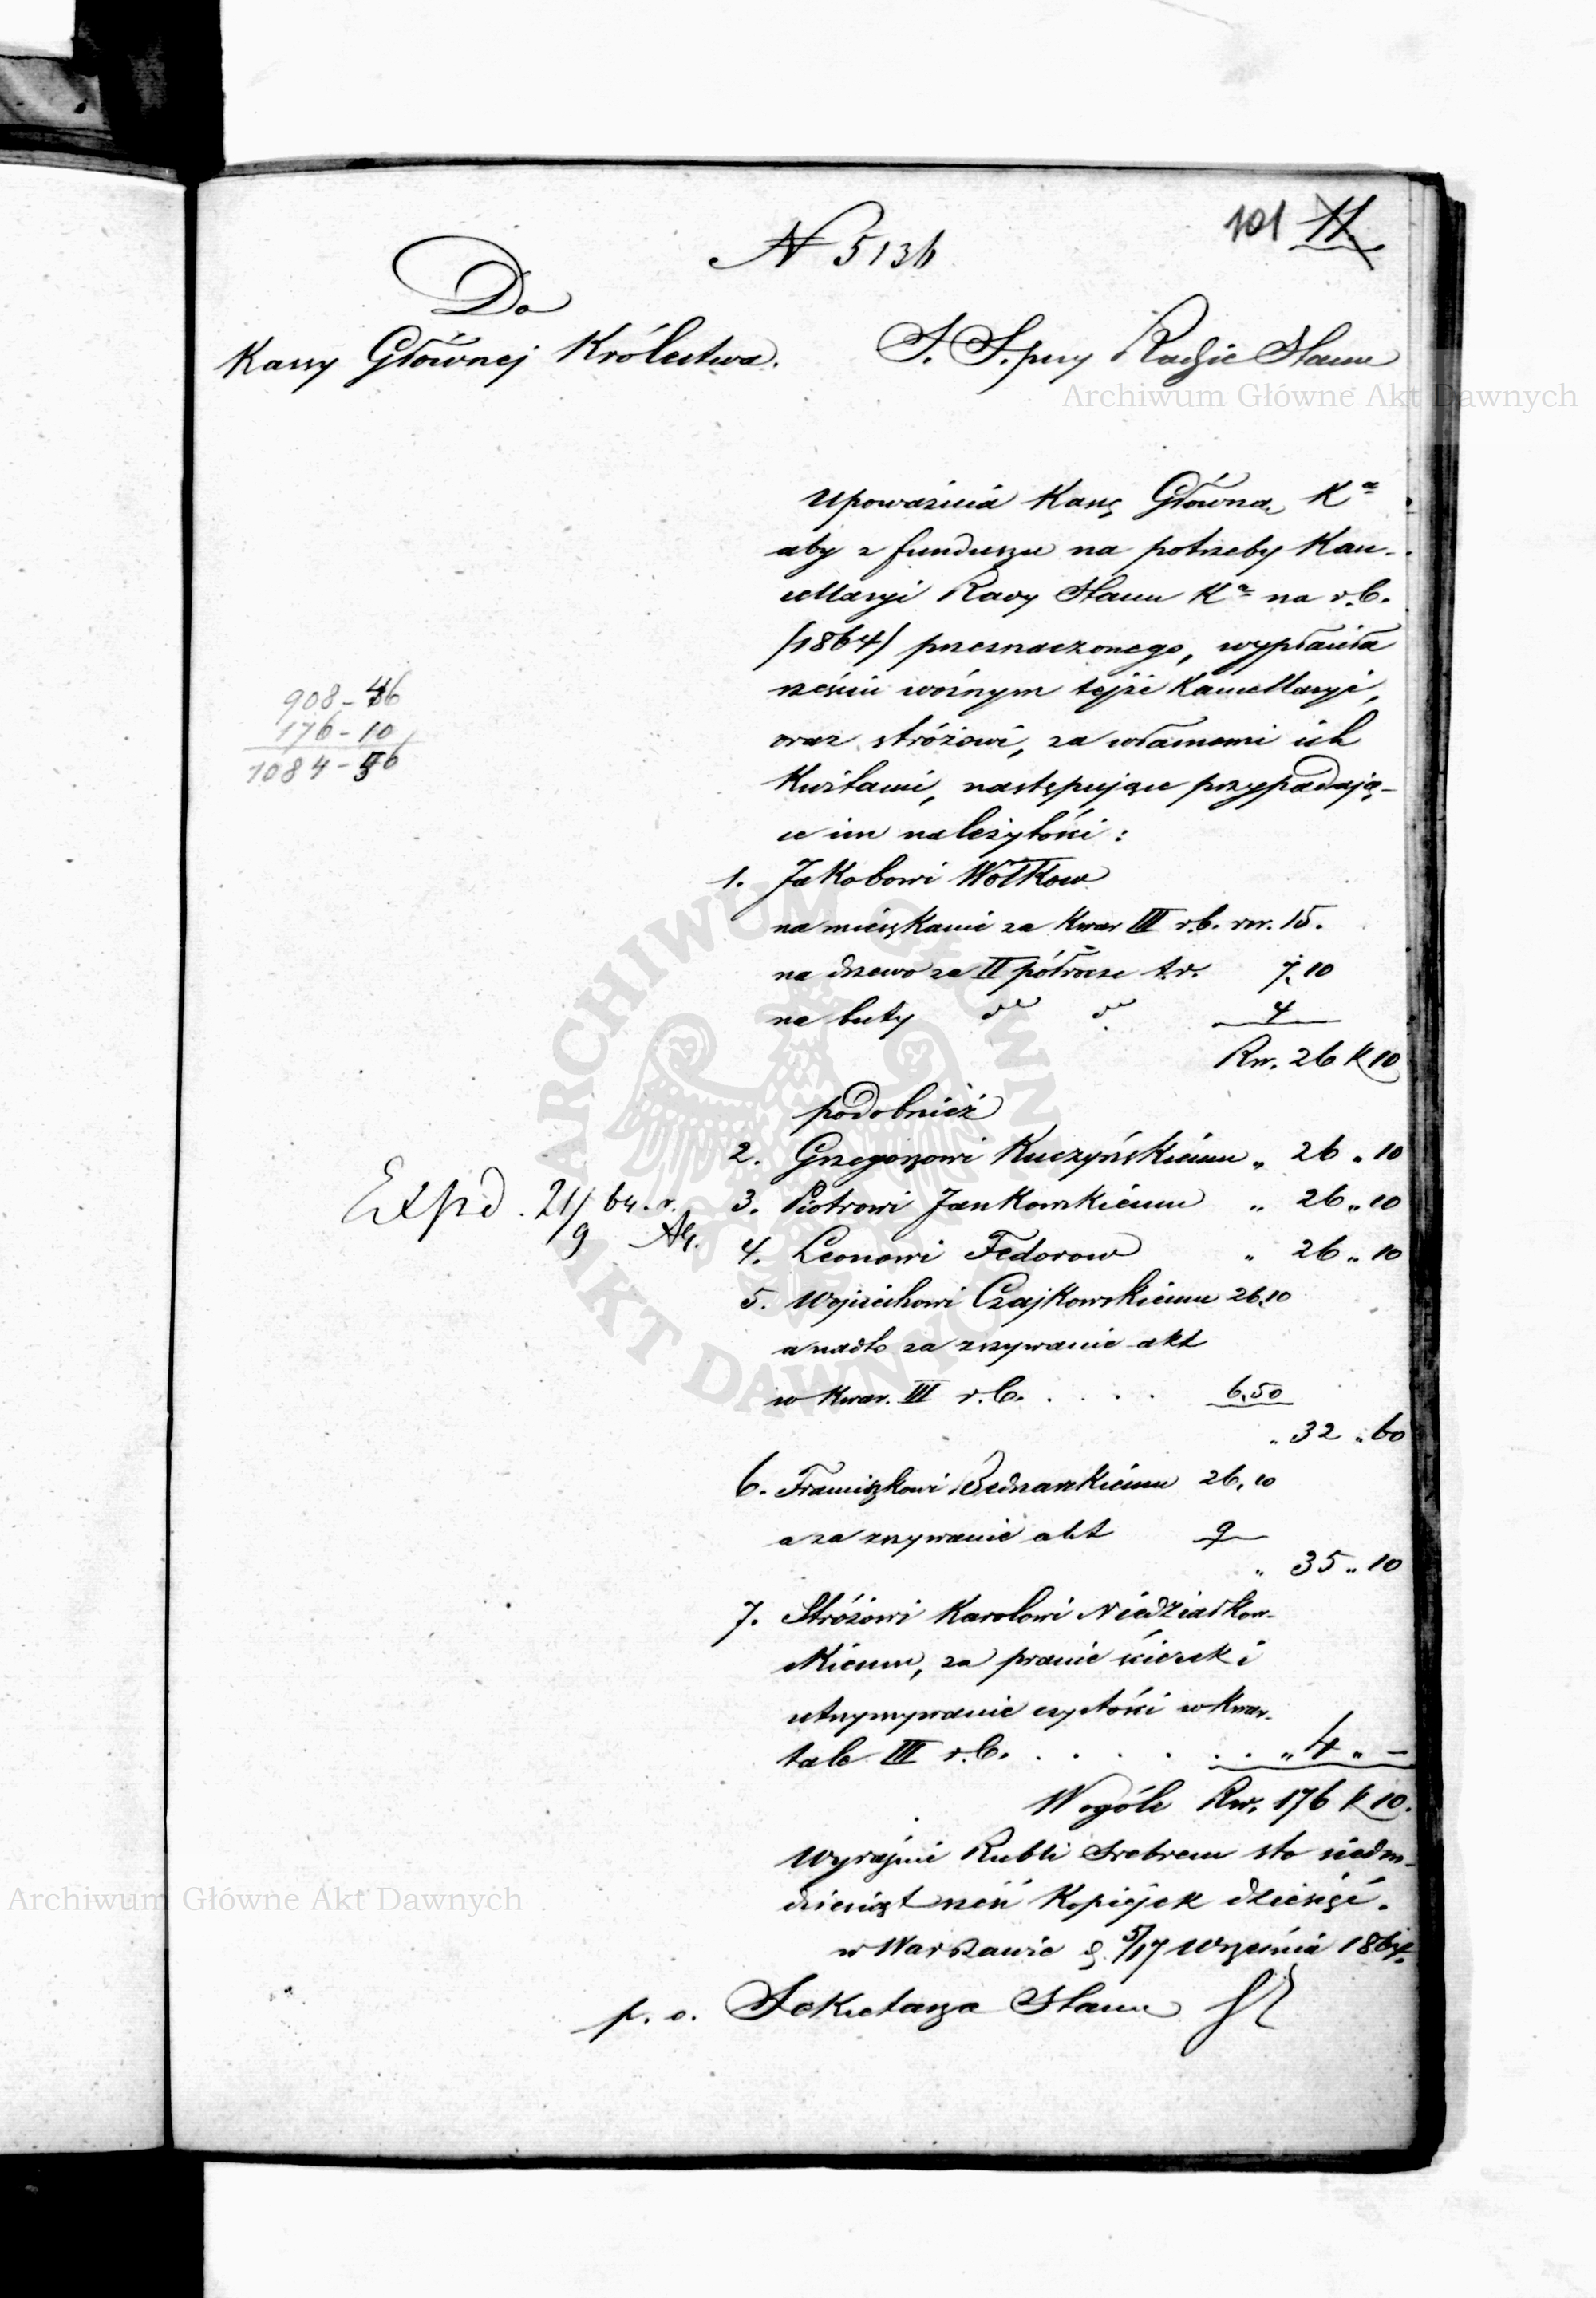 101 11.
N 5136
Do
Kassy Głównej Królestwa.
S. S. przy Radzie Stanu
Archiwum Główne Akt Dawnych
Upoważnia Kassę Główną Kᵃ
aby z funduszu na potrzeby Kan-
cellaryi Rady Stanu Kᵃ na r.b.
/1864/ przeznaczonego, wypłaciła
sześciu woźnym tejże Kancellaryi,
oraz stróżowi, za własnemi ich
Kwitami, następujące przypadają-
ce im należytości:
908-46
176-10
1084-56
1. Jakobowi Wołkow
na mieszkanie za Kwar III r.b. rsr. 15.
na drzewo za II półrocze t.r. 7,10
na buty dᵒ dᵒ 4
Rsr. 26 K 10
podobnież
2. Grzegorzowi Kuczyńskiemu „ 26 „ 10
Expd. 21/9 64. r.
3. Piotrowi Jankowskiemu „ 26 „ 10
4. Leonowi Fedorow „ 26 „ 10
5. Wojciechowi Czajkowskiemu 26,10
a nadto za zszywanie akt
w Kwar. III r.b. . . . . 6,50
„ 32 „ 60
6. Franciszkowi Bednarskiemu 26,10
a za zszywanie akt 9
„ 35 „ 10
7. Stróżowi Karolowi Niedziałkow-
skiemu, za pranie ścierek i
utrzymywanie czystości w Kwar-
tale III r.b. . . . . . . „ 4 „ –
Wogóle Rsr. 176 K 10.
Wyraźnie Rubli Srebrem sto siedm-
dziesiąt sześć Kopiejek dziesięć.
Archiwum Główne Akt Dawnych
w Warszawie d. 5/17 Września 1864.
p. o. Sekretarza Stanu
ARCHIWUM GŁÓWNE
AKT DAWNYCH